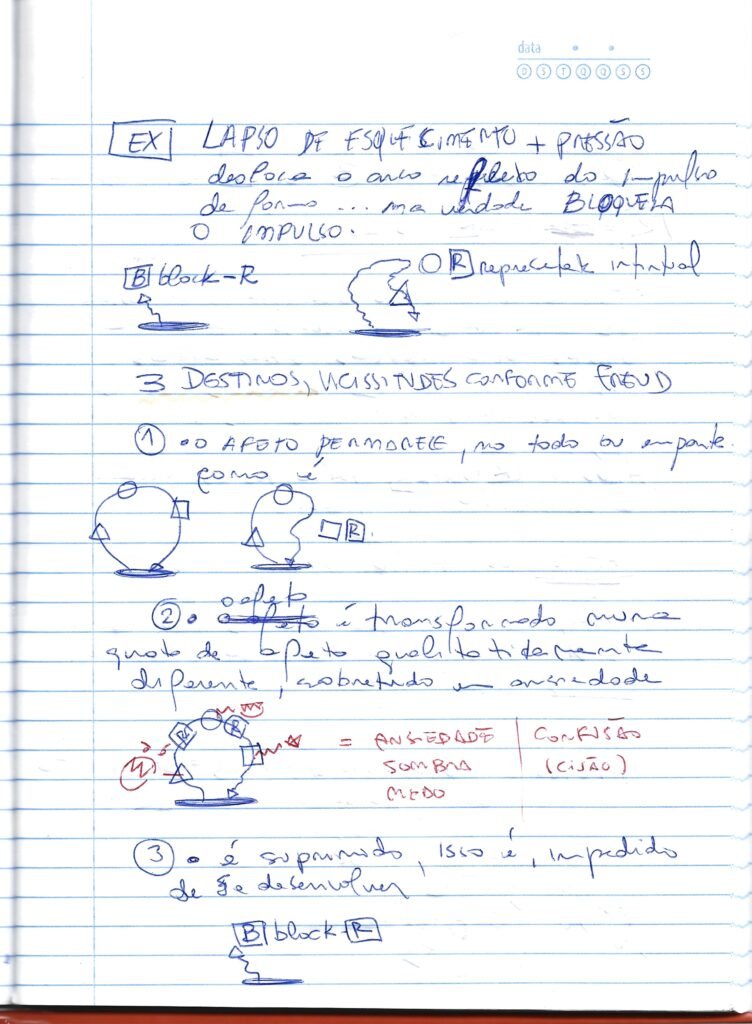 data
D S T Q Q S S
EX LAPSO DE ESQUECIMENTO + PRESSÃO
desloca o arco reflexo do impulso
de forma ... na verdade BLOQUEIA
O IMPULSO.
B block-R
R representate
3 DESTINOS, VICISSITUDES CONFORME FREUD
1 • O AFETO PERMANECE, no todo ou em parte
como é
R
2 • o afeto é transformado numa
quota de afeto qualitatidamente
diferente, sobretudo em ansiedade
R R
= ANSIEDADE | CONFUSÃO
SOMBRA (CISÃO)
MEDO
3 • é suprimido, isso é, impedido
de se desenvolver
B block-R